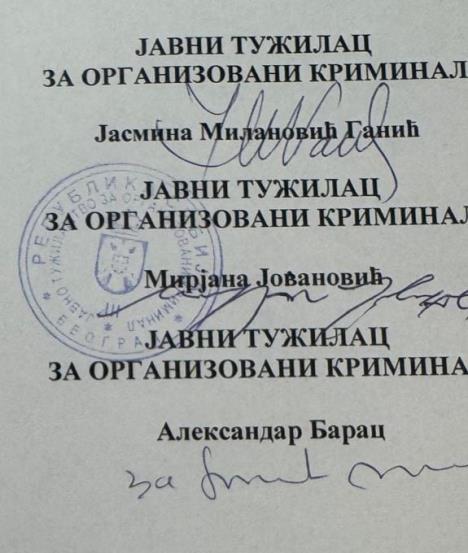 ЈАВНИ ТУЖИЛАЦ
ЗА ОРГАНИЗОВАНИ КРИМИНАЛ
Јасмина Милановић Ганић
ЈАВНИ ТУЖИЛАЦ
ЗА ОРГАНИЗОВАНИ КРИМИНАЛ
Мирјана Јовановић
РЕПУБЛИКА СРБИЈА
ЈАВНО ТУЖИЛАШТВО ЗА ОРГАНИЗОВАНИ КРИМИНАЛ
III
БЕОГРАД
ЈАВНИ ТУЖИЛАЦ
ЗА ОРГАНИЗОВАНИ КРИМИНА
Александар Барац
за